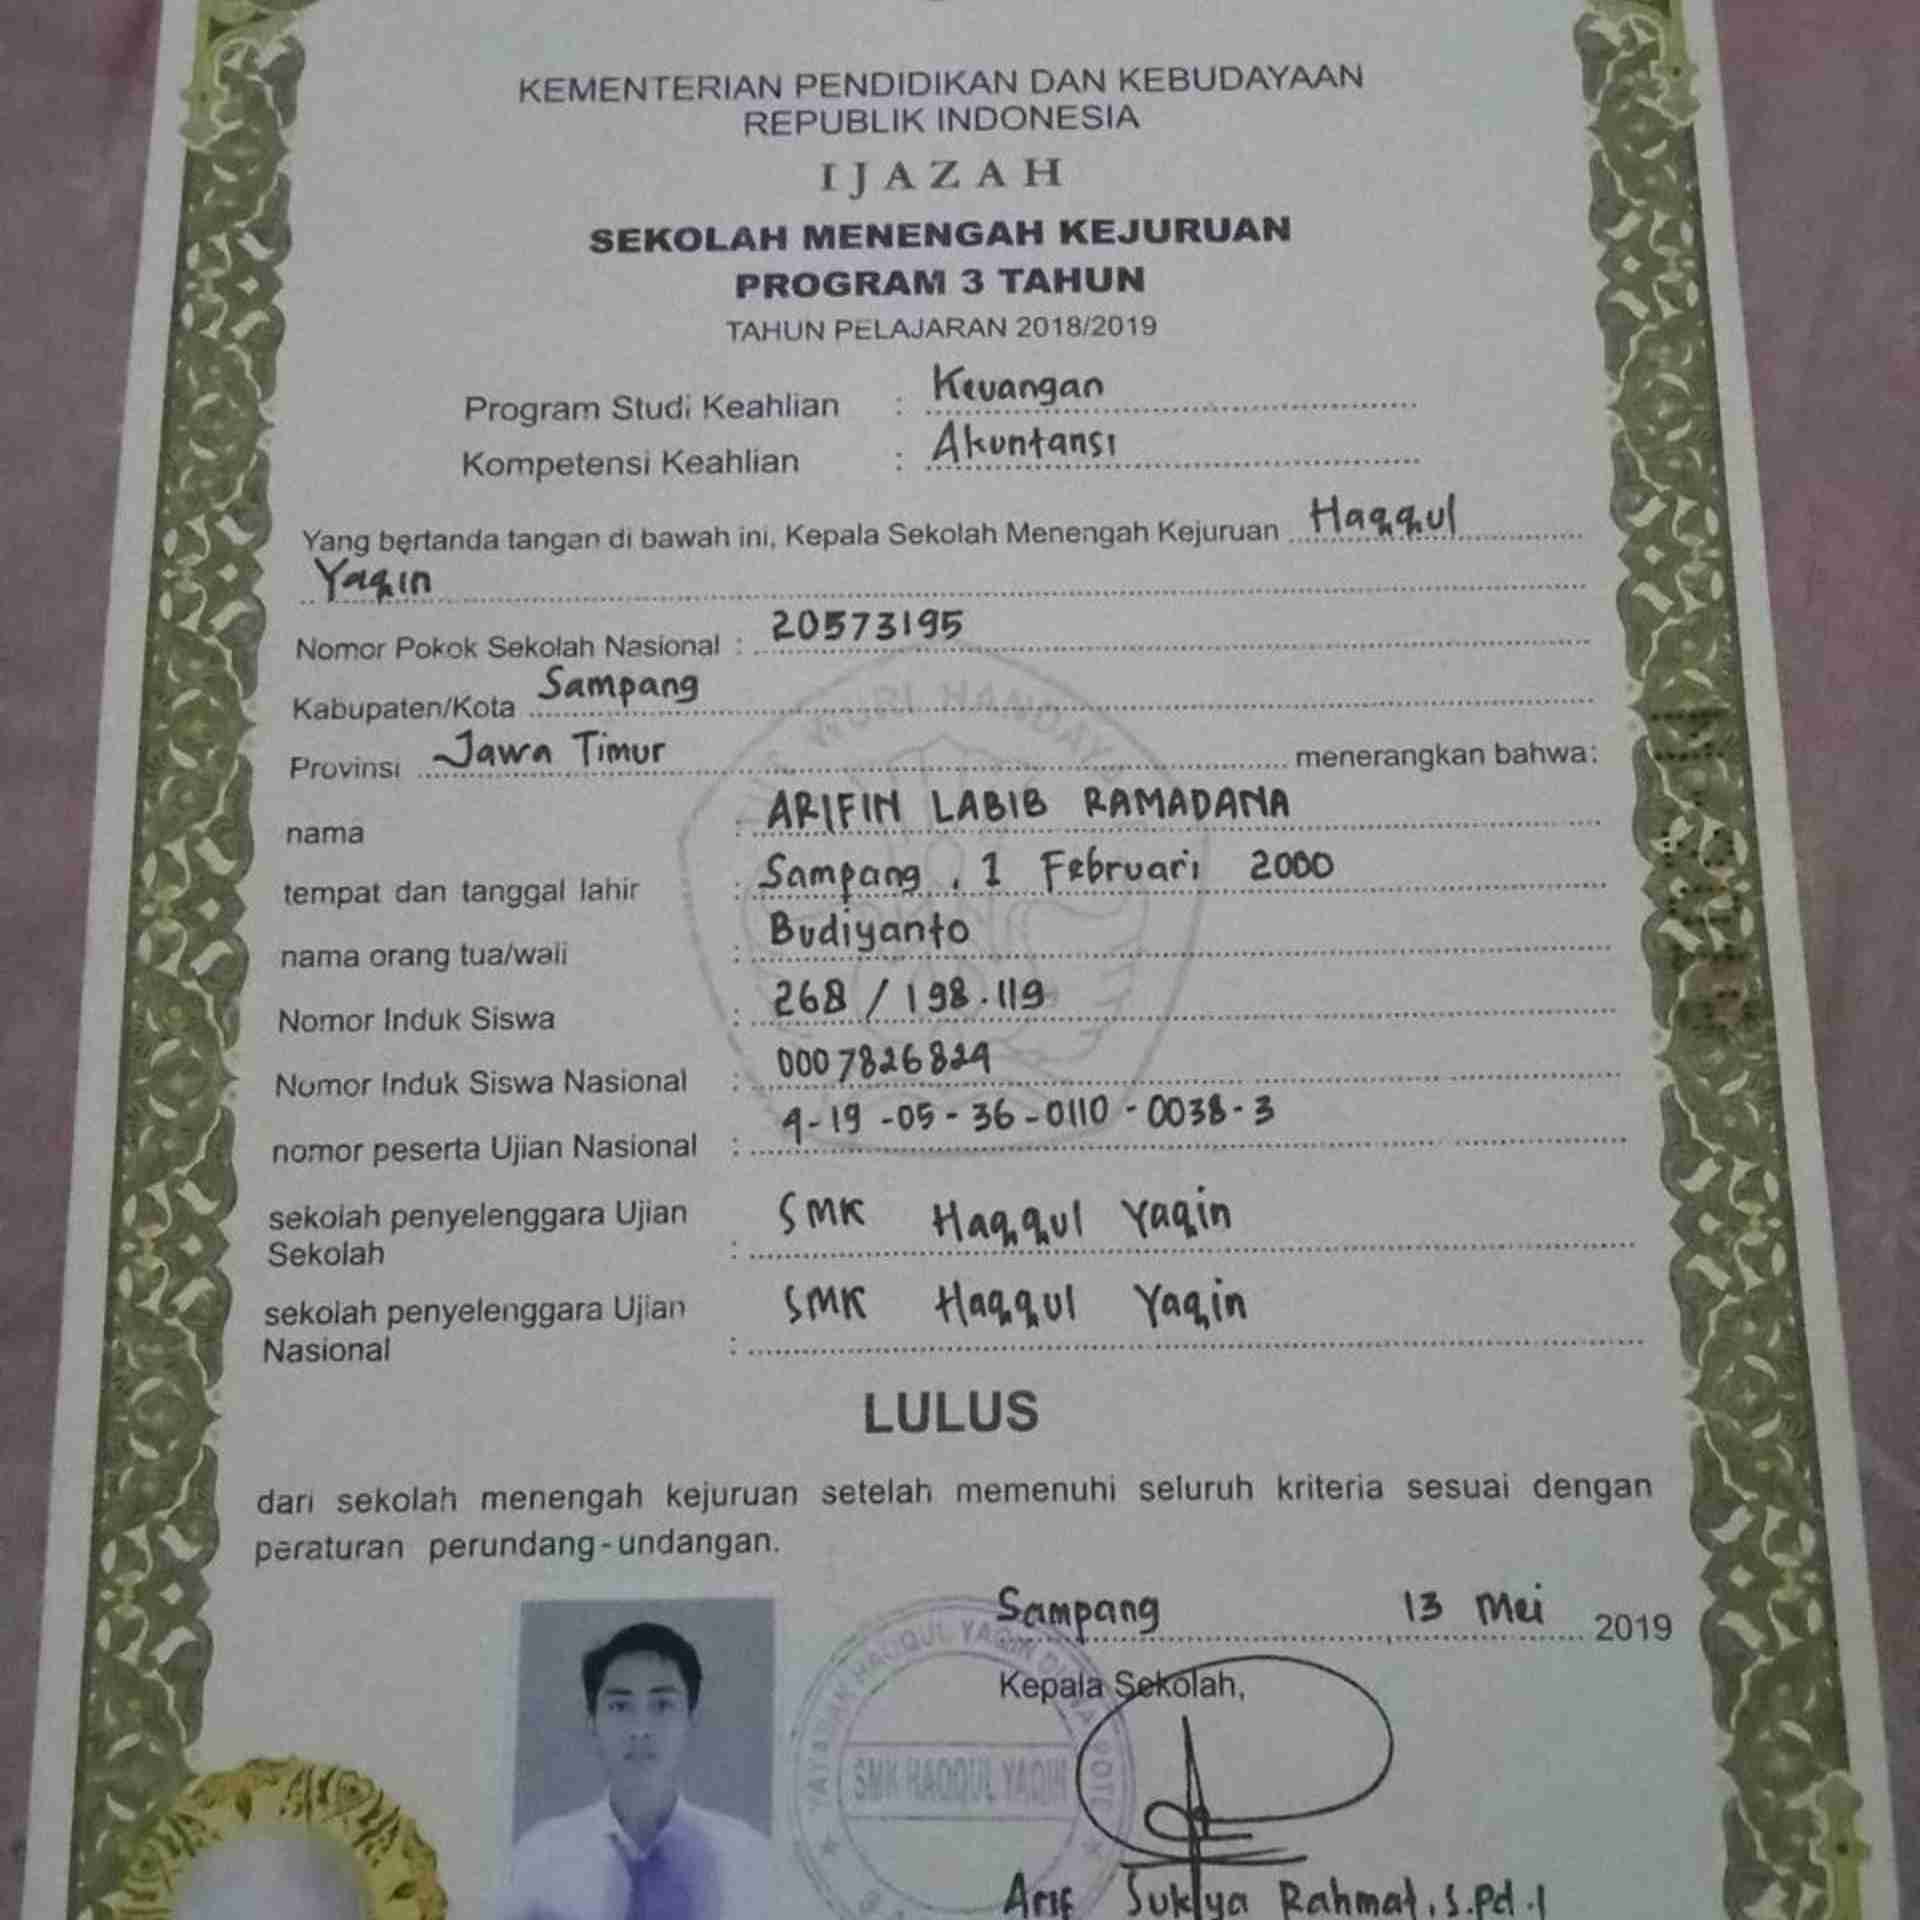 KEMENTERIAN PENDIDIKAN DAN KEBUDAYAAN
REPUBLIK INDONESIA
IJAZAH
SEKOLAH MENENGAH KEJURUAN
PROGRAM 3 TAHUN
TAHUN PELAJARAN 2018/2019
Program Studi Keahlian : Keuangan
Kompetensi Keahlian : Akuntansi
Yang bertanda tangan di bawah ini, Kepala Sekolah Menengah Kejuruan Haqqul
Yaqin
Nomor Pokok Sekolah Nasional : 20573195
Kabupaten/Kota Sampang
Provinsi Jawa Timur menerangkan bahwa:
nama : ARIFIN LABIB RAMADANA
tempat dan tanggal lahir : Sampang, 1 Februari 2000
nama orang tua/wali : Budiyanto
Nomor Induk Siswa : 268 / 198.119
Nomor Induk Siswa Nasional : 0007826824
nomor peserta Ujian Nasional : 4-19-05-36-0110-0038-3
sekolah penyelenggara Ujian
Sekolah : SMK Haqqul Yaqin
sekolah penyelenggara Ujian
Nasional : SMK Haqqul Yaqin
LULUS
dari sekolah menengah kejuruan setelah memenuhi seluruh kriteria sesuai dengan
peraturan perundang-undangan.
Sampang, 13 Mei 2019
Kepala Sekolah,
SMK HAQQUL YAQIN
Arif Rahmat, S.Pd.I